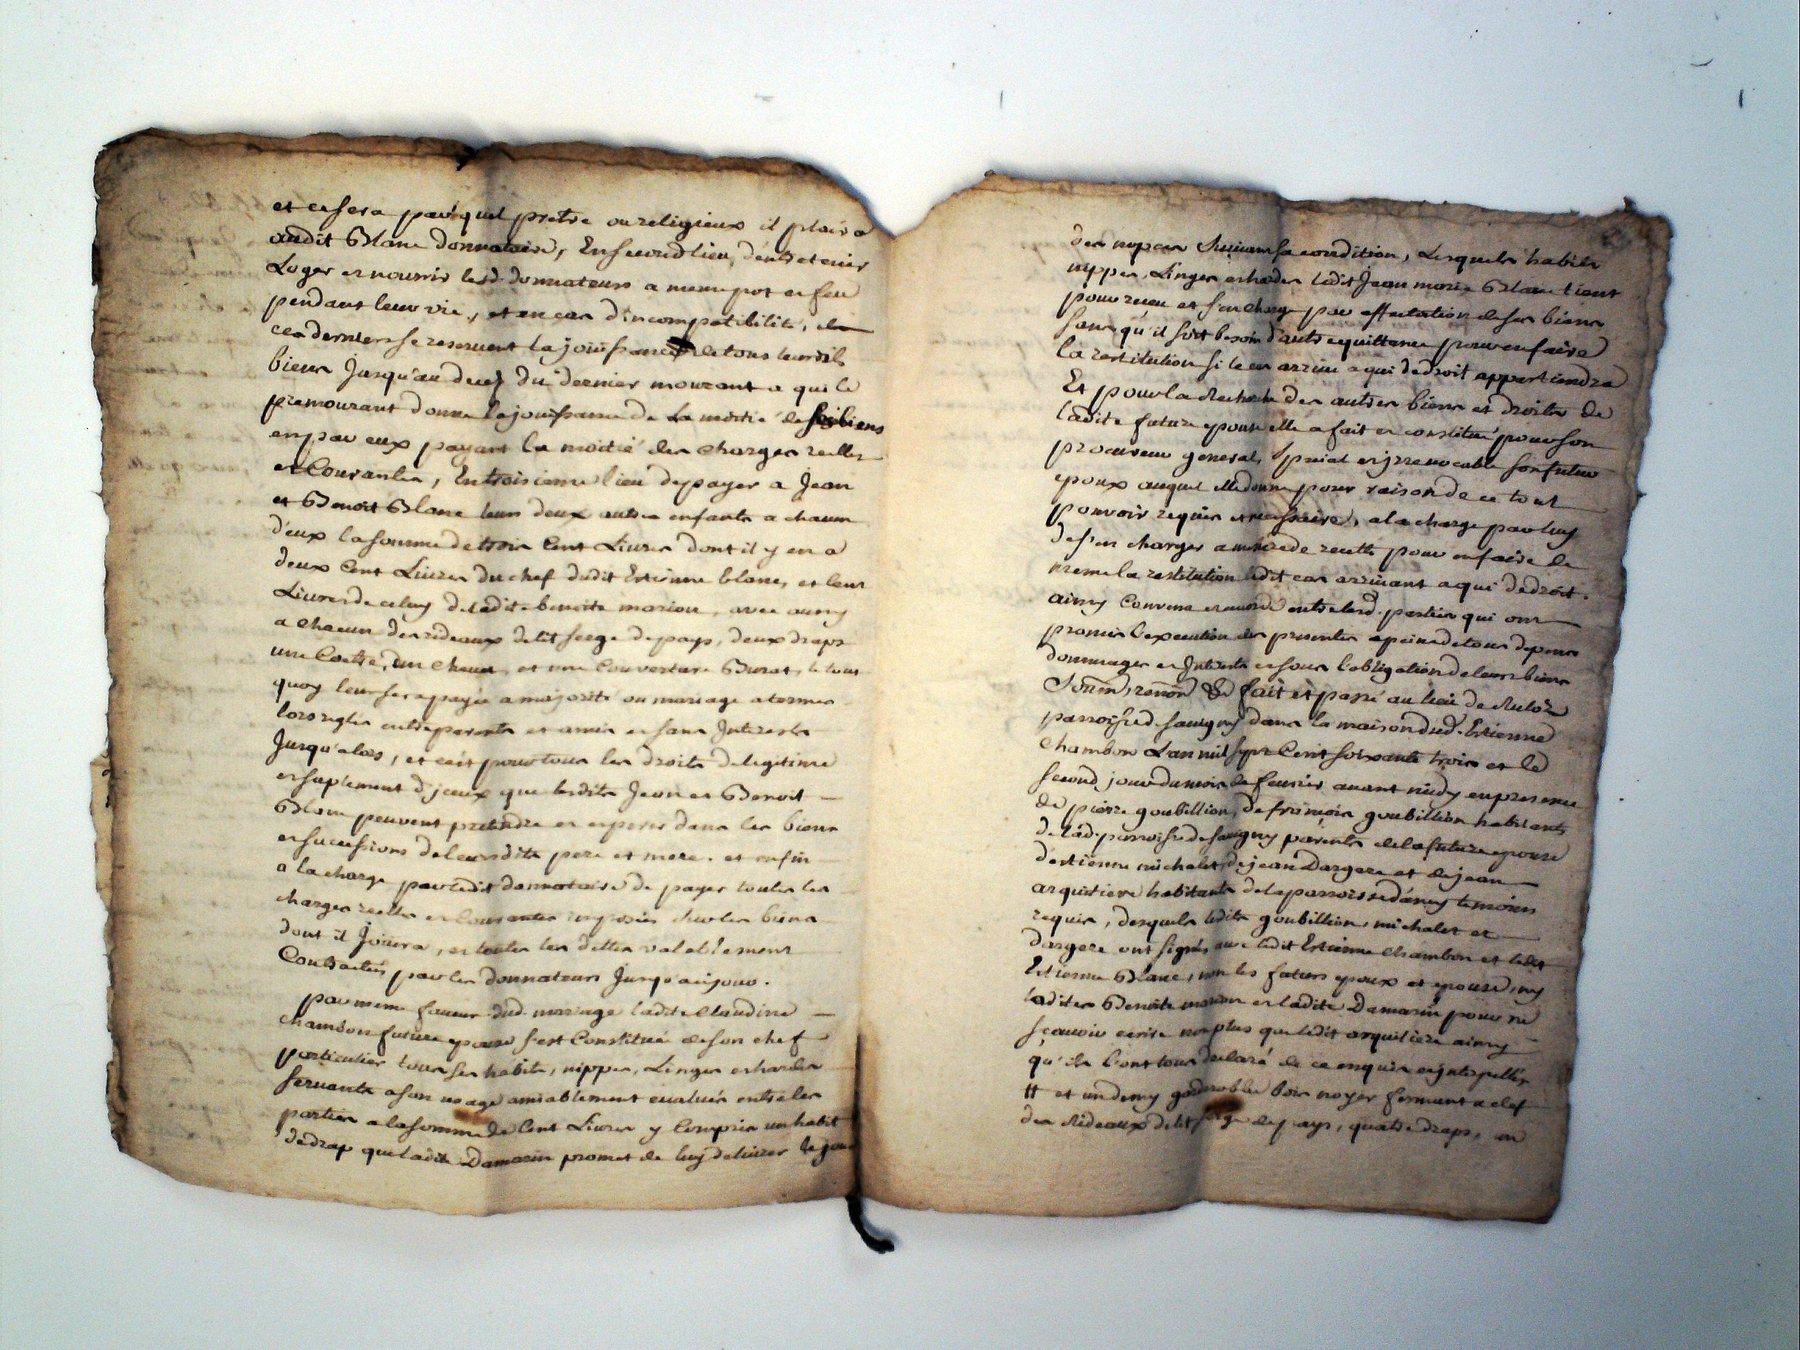 et ce sera par quel pretre ou religieux il plaira
audit Blanc donnataire, En second lieu, d'entretenir
Loger et nourrir lesd. donnateurs a meme pot et feu
pendant leur vie, et en cas d'incompatibilité,
ces derniers se reservent la joüissance de tous leursdits
biens Jusqu'au decez du dernier mourant a qui le
premourant donne la joüissance de la moitié de ses biens
en par eux payant la moitié des charges reelles
et Courantes, En troisieme lieu de payer a Jean
et Benoit Blanc leurs deux autres enfants a chacun
d'eux la somme de trois Cent Livres dont il y en a
deux Cent Livres du chef dudit Estienne blanc, et Cent
Livres de celuy de ladite benoite morion, avec aussy
a chacun des rideaux de lit serge de pays, deux draps
une Coetre, un chevet, et une Couverture Burat, le tout
quoy leur sera payée a majorité ou mariage a termes
lors regles entre parents et amis et sans Interests
Jusqu'alors, et c'est pour tous les droits de legitime
et suplement d'jceux que lesdits Jean et Benoit
Blanc peuvent pretendre et esperer dans les biens
et successions de leursdits pere et mere. et enfin
a la charge par ledit donnataire de payer toutes les
charges reelles et Courantes imposées sur les biens
dont il Joüira, et toutes les dettes valablement
Contractées par les donnateurs Jusqu'aujour.
par meme faveur dud. mariage ladite Claudine
chambon future epouse s'est Constituée de son chef
particulier tous ses habits, nippes, Linges et hardes
servants a son usage amiablement evalués entre les
parties a la somme de Cent Livres y Compris un habit
de drap que ladite Damarin promet de luy delivrer le jour
des nopces suivant sa condition, Lesquels habits
nippes, Linges et hardes ledit Jean morie Blanc tient
pour receu et s'en charge par affectation de ses biens
sans qu'il soit besoin d'autre quittance pour en faire
la restitution si le cas arrive a qui de droit appartiendra
Et pour la Recherche des autres biens et droits de
ladite future epouse elle a fait et constitué pour son
procureur general, special et jrrevocable son futur
epoux auquel elle donne pour raison de ce tout
pouvoir requis et necessaire, a la charge par luy
de s'en charger a mesure de recette pour en faire de
meme la restitution ledit cas arrivant a qui de droit.
ainsy Convenu et accordé entre lesd. parties qui ont
promis l'execution des presentes a peine de tous depens
dommages et Interests et sous l'obligation de leurs biens
Soûm, renôn &c fait et passé au lieu de
parroisse de savigny dans la maison dud. Estienne
chambon L'an mil sept Cent soixante trois et le
second jour du mois de fevrier avant midy en presence
de pierre goubillion, de françois goubillion habitants
de lad. parroisse de savigny parents de la future epouse
d'estienne michalet, de jean Dargere et de jean
arquitiere habitants de la parroisse d'ancy temoins
requis, desquels lesdits goubillion, michalet et
dargere ont signés avec ledit Estienne chambon et ledit
Estienne Blanc, non les futurs epoux et epouse, ny
ladite Benoite morion et ladite Damarin pour ne
sçavoir ecrire non plus que ledit arquitiere ainsy
qu'ils l'ont tous declaré de ce enquis et jnterpellés
# et un demy garderobbe bois noyer fermant a clef
des Rideaux de lit serge de pays, quatre draps, un